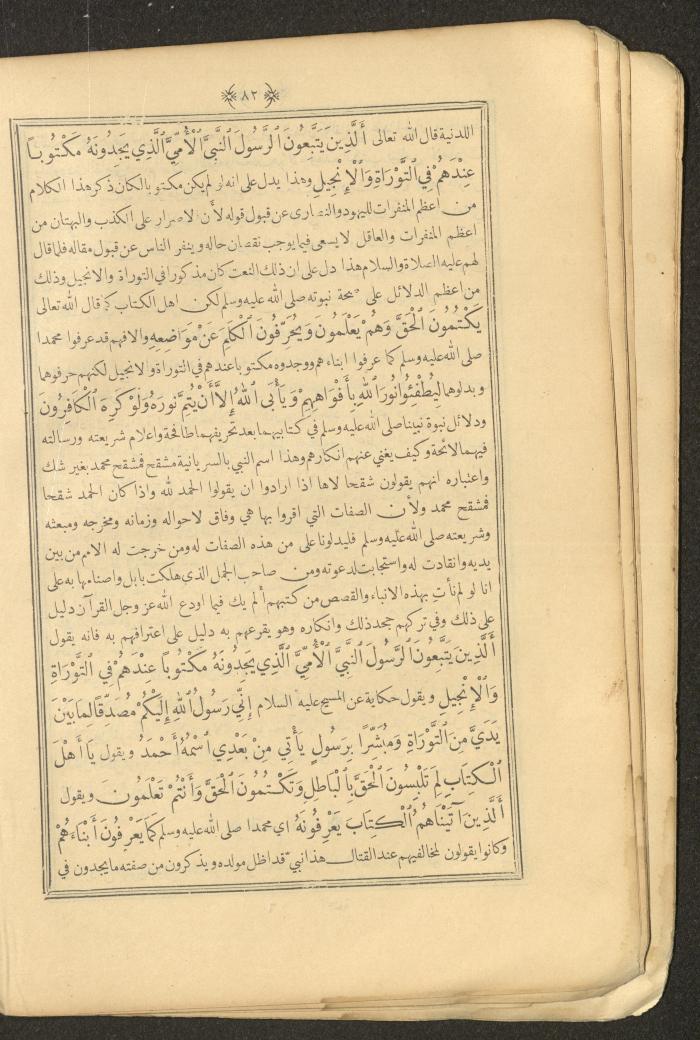 ٨٢
اللدنية قال الله تعالى أَلَّذِينَ يَتَّبِعُونَ ٱلرَّسُولَ ٱلنَّبِيَّ ٱلْأُمِّيَّ ٱلَّذِي يَجِدُونَهُ مَكْتُوبًا
عِنْدَهُمْ فِي ٱلتَّوْرَاةِ وَٱلْإِنْجِيلِ وهذا يدل على انه لو لم يكن مكتوبا لكان ذكر هذا الكلام
من اعظم المنفرات لليهود والنصارى عن قبول قوله لأن الاصرار على الكذب والبهتان من
اعظم المنفرات والعاقل لا يسعى فيما يوجب نقصان حاله وينفر الناس عن قبول مقاله فلما قال
لهم عليه الصلاة والسلام هذا دل على ان ذلك النعت كان مذكورا في التوراة والانجيل وذلك
من اعظم الدلائل على صحة نبوته صلى الله عليه وسلم لكن اهل الكتاب كما قال الله تعالى
يَكْتُمُونَ ٱلْحَقَّ وَهُمْ يَعْلَمُونَ وَيُحَرِّفُونَ ٱلْكَلِمَ عَنْ مَوَاضِعِهِ والا فهم قد عرفوا محمدا
صلى الله عليه وسلم كما عرفوا ابناءهم ووجدوه مكتوبا عندهم في التوراة والانجيل لكنهم حرفوهما
وبدلوهما لِيُطْفِئُوا نُورَ ٱللهِ بِأَفْوَاهِهِمْ وَيَأْبَى ٱللهُ إِلاَّ أَنْ يُتِمَّ نُورَهُ وَلَوْ كَرِهَ ٱلْكَافِرُونَ
ودلائل نبوة نبينا صلى الله عليه وسلم في كتابيهما بعد تحريفهما طافحة واعلام شريعته ورسالته
فيهما لائحة وكيف يغني عنهم انكارهم وهذا اسم النبي بالسريانية مشفح فمشفح محمد بغير شك
واعتباره انهم يقولون شفحا لاها اذا ارادوا ان يقولوا الحمد لله واذا كان الحمد شفحا
فمشفح محمد ولأن الصفات التي اقروا بها هي وفاق لاحواله وزمانه ومخرجه ومبعثه
وشريعته صلى الله عليه وسلم فليدلونا على من هذه الصفات له ومن خرجت له الامم من بين
يديه وانقادت له واستجابت لدعوته ومن صاحب الجمل الذي هلكت بابل واصنامها به على
انا لو لم نأت بهذه الانباء والقصص من كتبهم ألم يك فيما اودع الله عز وجل القرآن دليل
على ذلك وفي تركهم جحد ذلك وانكاره وهو يقرعهم به دليل على اعترافهم به فانه يقول
أَلَّذِينَ يَتَّبِعُونَ ٱلرَّسُولَ ٱلنَّبِيَّ ٱلْأُمِّيَّ ٱلَّذِي يَجِدُونَهُ مَكْتُوبًا عِنْدَهُمْ فِي ٱلتَّوْرَاةِ
وَٱلْإِنْجِيلِ ويقول حكاية عن المسيح عليه السلام إِنِّي رَسُولُ ٱللهِ إِلَيْكُمْ مُصَدِّقًا لِمَا بَيْنَ
يَدَيَّ مِنَ ٱلتَّوْرَاةِ وَمُبَشِّرًا بِرَسُولٍ يَأْتِي مِنْ بَعْدِي ٱسْمُهُ أَحْمَدُ ويقول يَا أَهْلَ
ٱلْكِتَابِ لِمَ تَلْبِسُونَ ٱلْحَقَّ بِٱلْبَاطِلِ وَتَكْتُمُونَ ٱلْحَقَّ وَأَنْتُمْ تَعْلَمُونَ ويقول
أَلَّذِينَ آتَيْنَاهُمُ ٱلْكِتَابَ يَعْرِفُونَهُ اي محمدا صلى الله عليه وسلم كَمَا يَعْرِفُونَ أَبْنَاءَهُمْ
وكانوا يقولون لمخالفيهم عند القتال هذا نبي قد اظل مولده ويذكرون من صفته ما يجدون في